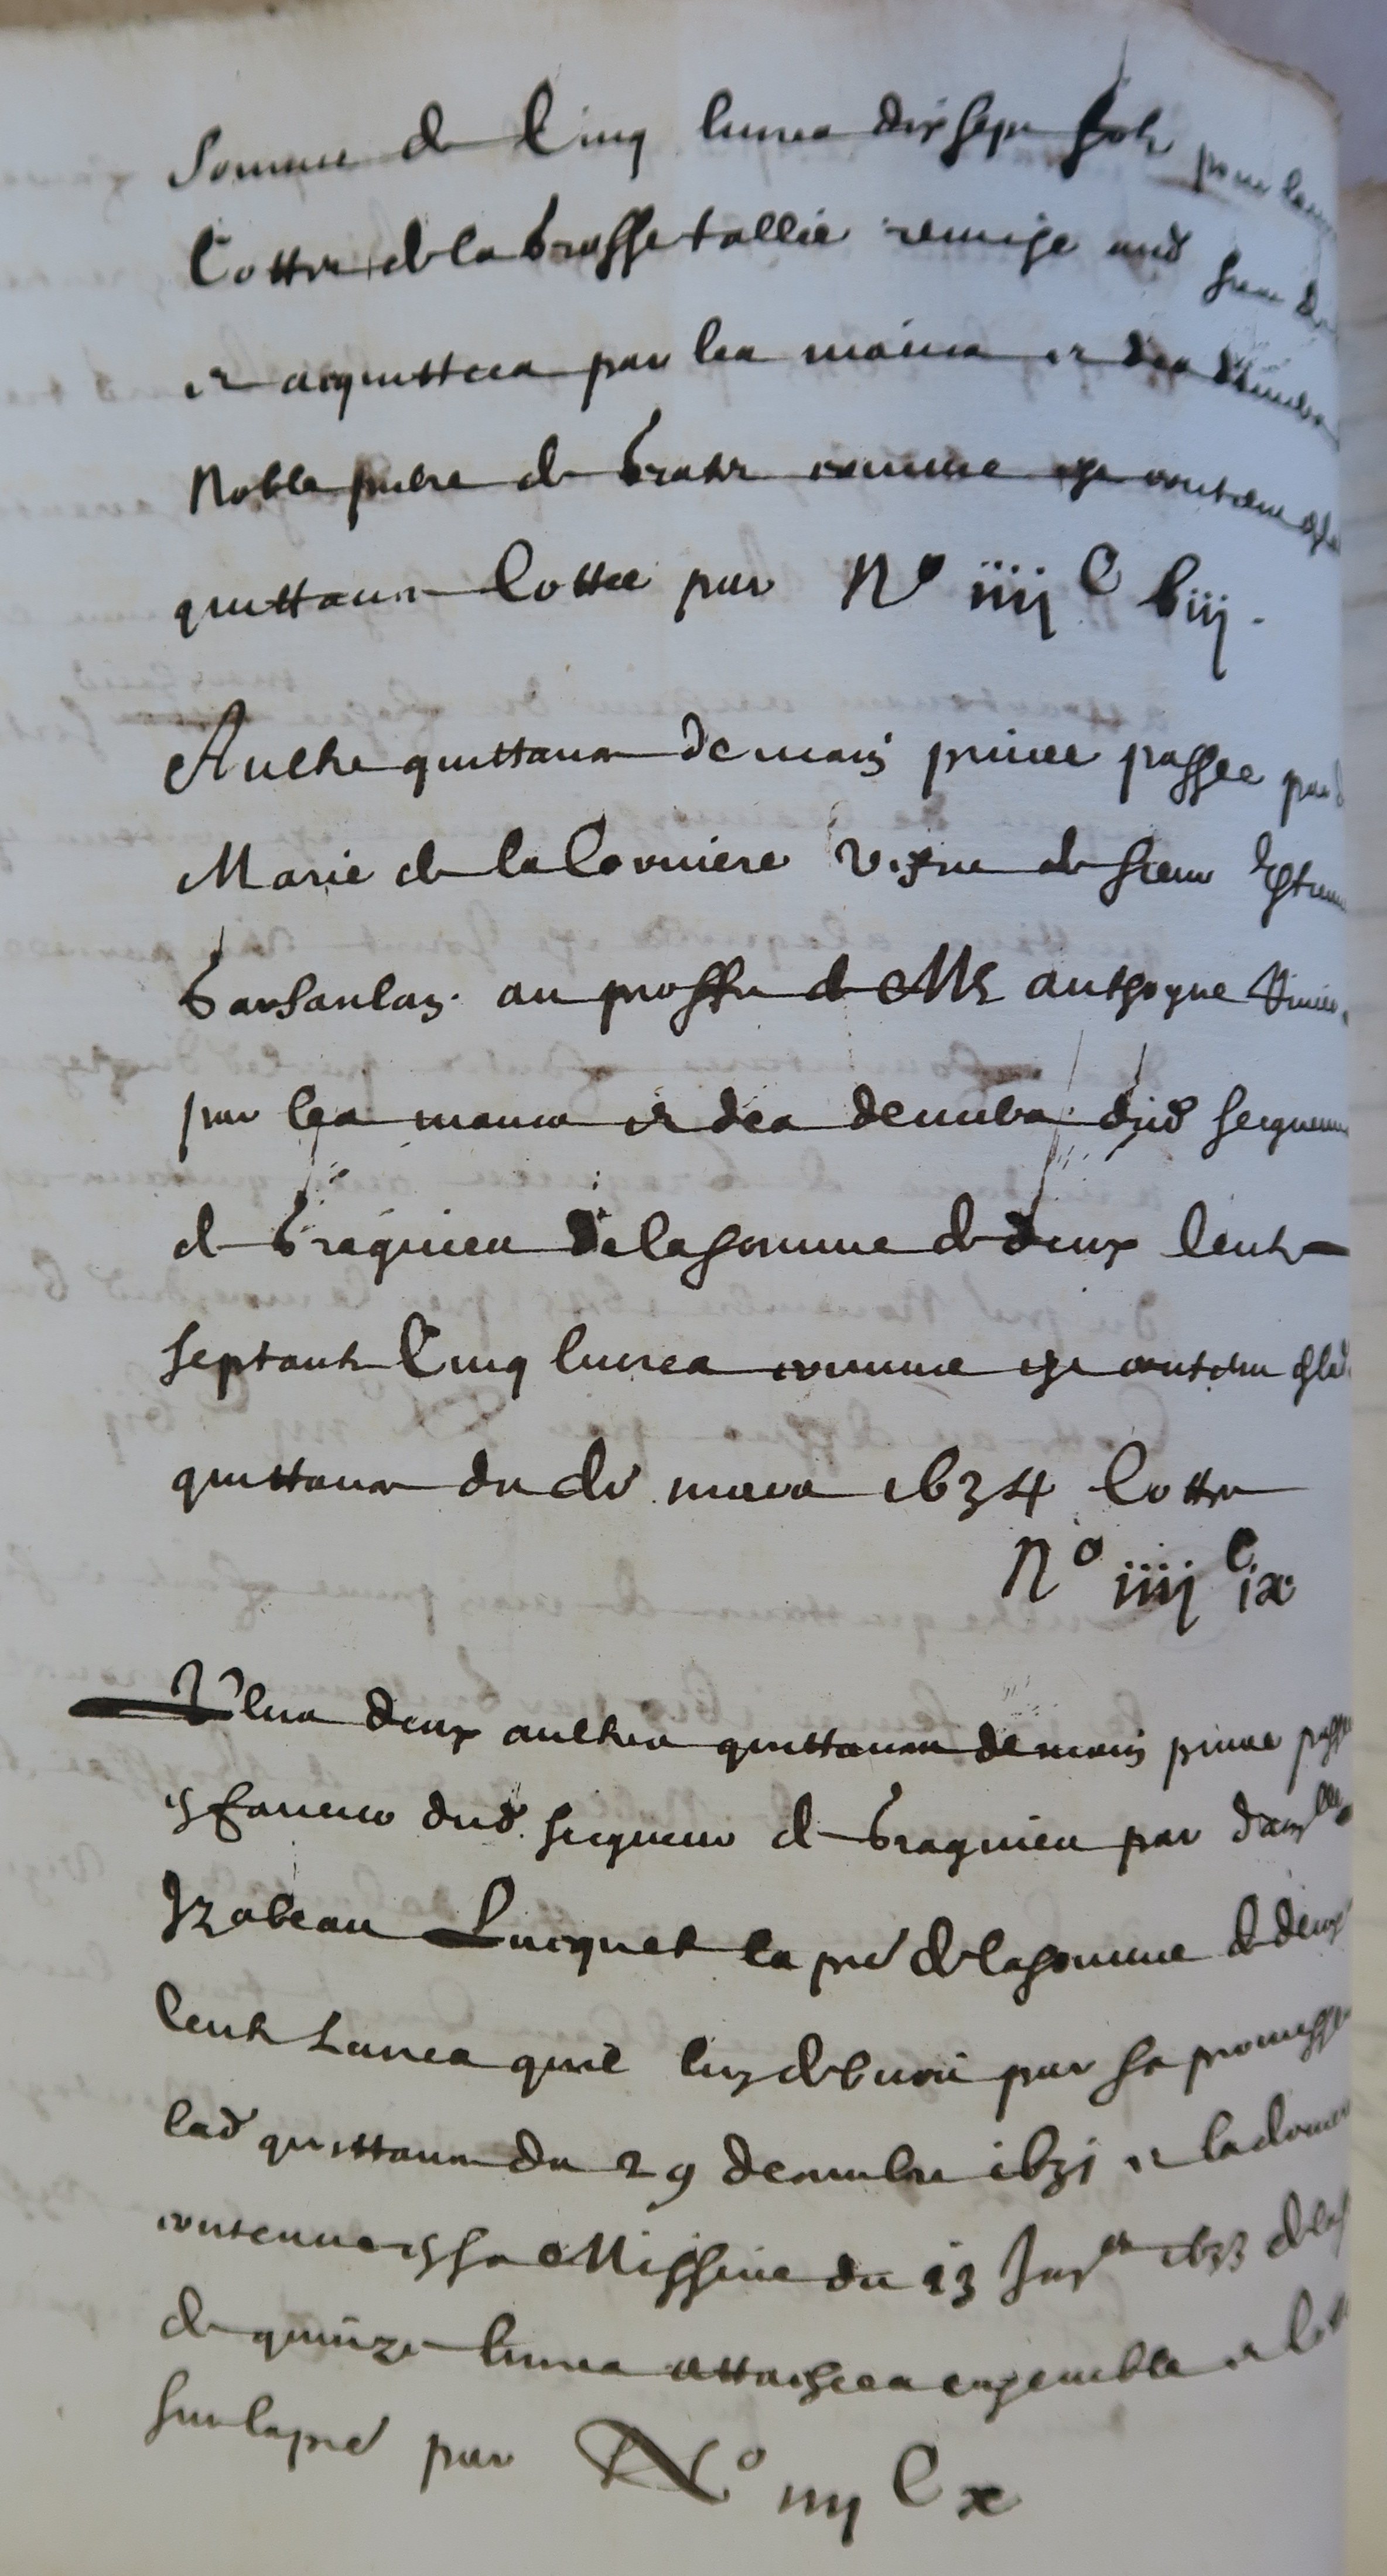 Somme de Cinq livres dix sept solz pour
Cotte de la brosse tallie remise aud sieur de
et acquittees par les mains et des deniers
Noble pierre de brate comme est contenu
quittance Cottee par N° iiij C viij.
Aultre quittance de main privee passee par
Marie de la Corniere vefve de sieur
barsanlaz. au proffit de Me anthoyne
par les mains et des deniers dud seigneur
de bragnieu de la somme de deux Cents
septante Cinq livres comme est contenu
quittance du de mars 1634 Cotte
N° iiij C ix
Plus deux aultres quittances de main privee
en faveur dud. seigneur de bragnieu par dam.lle
Izabeau Lucquet la pre de la somme de deux
Cents Livres quil luy debvoit par sa promesse
lad quittance du 29 decembre 1631 et la
contenue en sa Missive du 13 Janer 1633
de quinze livres attachees ensemble et
sur la pre par N° iiij C x